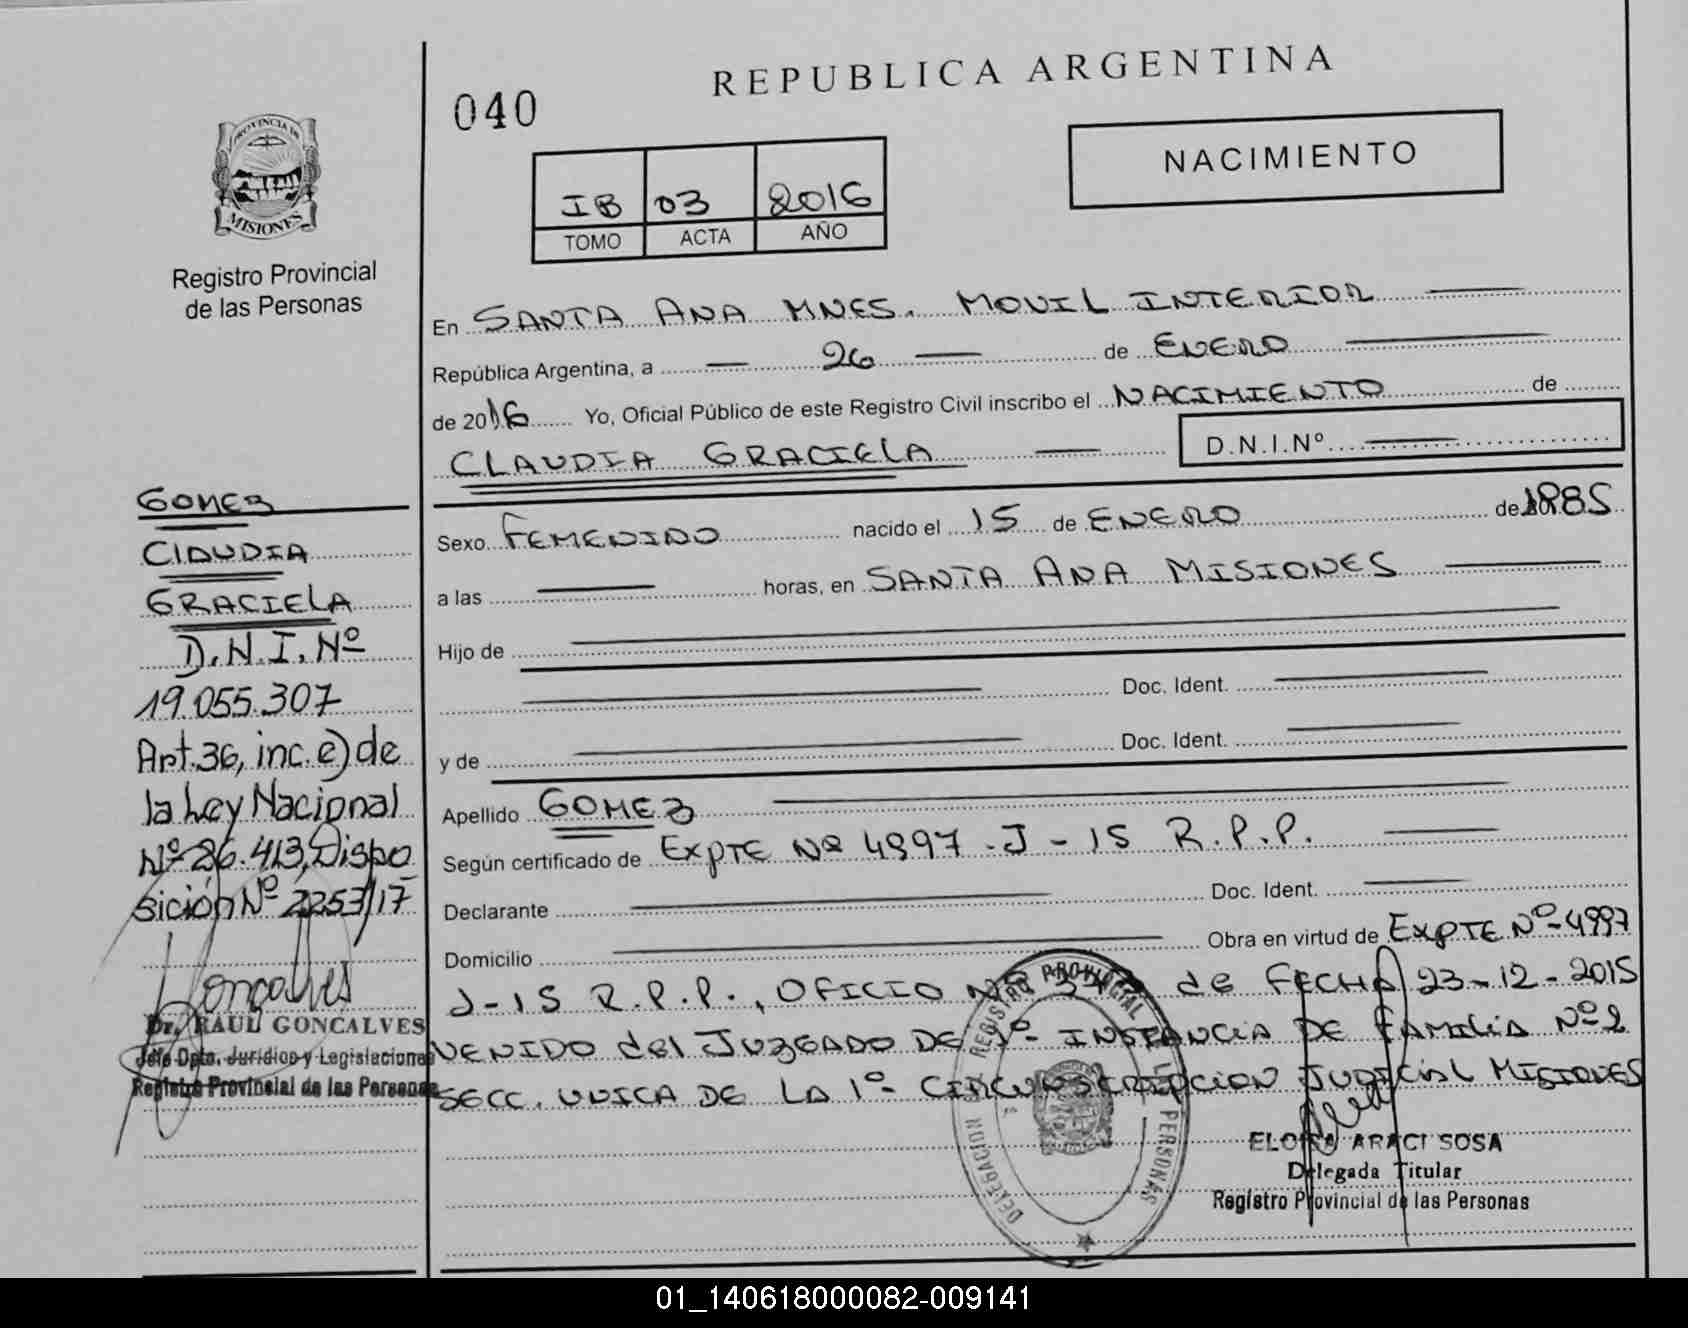 REPUBLICA ARGENTINA
040
NACIMIENTO
PROVINCIA DE
MISIONES
Registro Provincial
de las Personas
IB 03 2016
TOMO ACTA AÑO
En SANTA ANA MNES. MOVIL INTERIOR
República Argentina, a 26 de ENERO
de 2016 Yo, Oficial Público de este Registro Civil inscribo el NACIMIENTO de
CLAUDIA GRACIELA D.N.I.Nº
Sexo FEMENINO nacido el 15 de ENERO de 1985
a las horas, en SANTA ANA MISIONES
Hijo de
Doc. Ident.
y de Doc. Ident.
Apellido GOMEZ
Según certificado de EXPTE Nº 4997-J-15 R.P.P.
Declarante Doc. Ident.
Domicilio Obra en virtud de EXPTE Nº-4997
J-15 R.P.P., OFICIO Nº de FECHA 23-12-2015
VENIDO del JUZGADO DE 1º INSTANCIA DE FAMILIA Nº2
SECC. UNICA DE LA 1º CIRCUNSCRIPCION JUDICIAL MISIONES
GOMEZ
CLAUDIA
GRACIELA
D.N.I. Nº
19.055.307
Art.36, inc. e) de
la Ley Nacional
Nº 26.413, Dispo
sición Nº 2253/17
Goncalves
Dr. RAUL GONCALVES
Jefe Dpto. Jurídico y Legislaciones
Registro Provincial de las Personas
DELEGACION REGISTRO PROVINCIAL DE LAS PERSONAS
ELOISA ARACI SOSA
Delegada Titular
Registro Provincial de las Personas
01_140618000082-009141